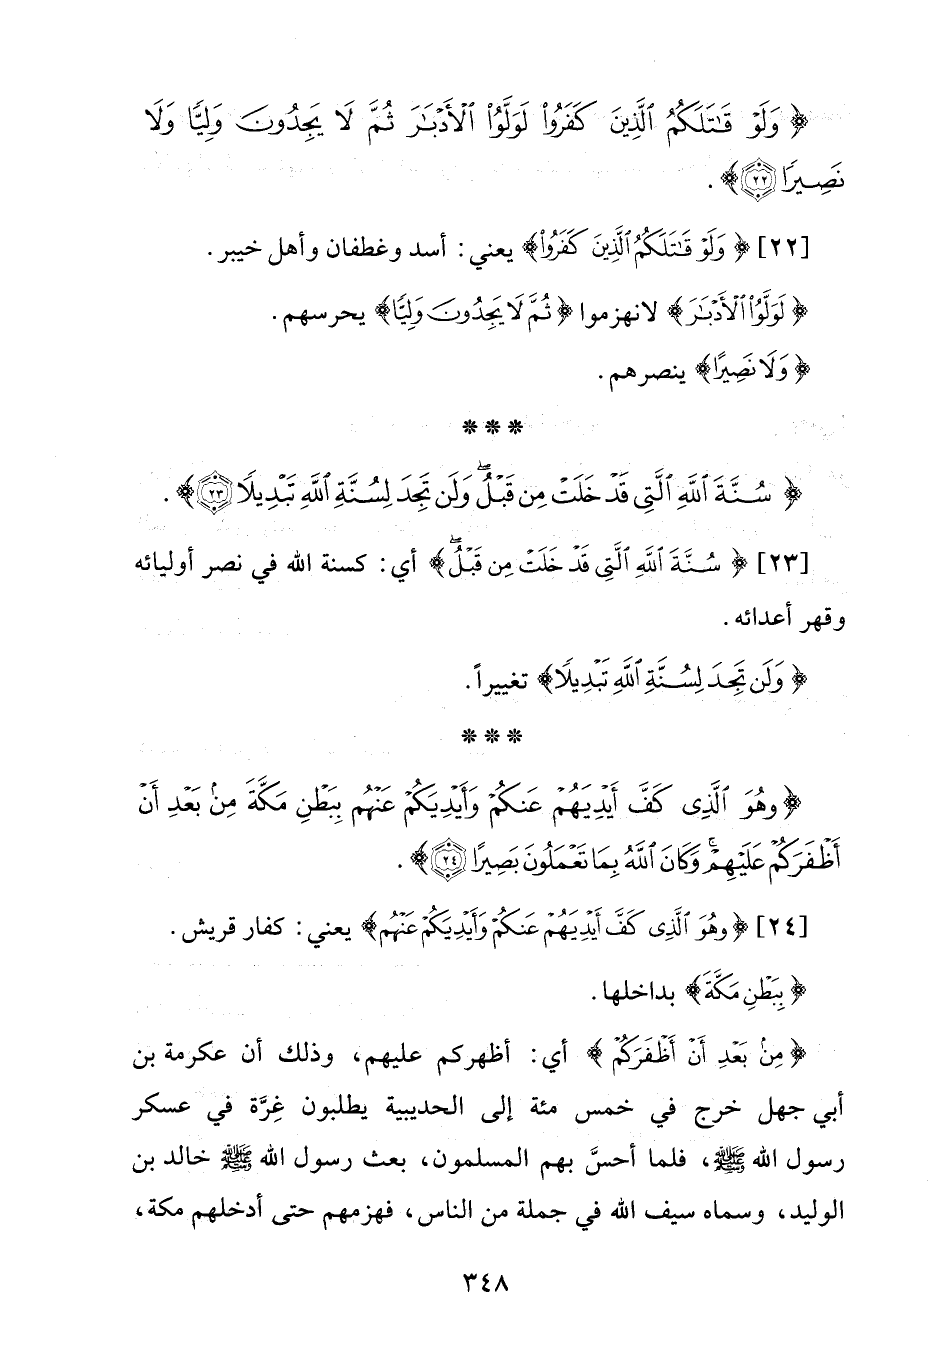 ﴿ وَلَوْ قَٰتَلَكُمُ ٱلَّذِينَ كَفَرُوا۟ لَوَلَّوُا۟ ٱلْأَدْبَٰرَ ثُمَّ لَا يَجِدُونَ وَلِيًّا وَلَا
نَصِيرًا ٢٢﴾ .
[٢٢] ﴿ وَلَوْ قَٰتَلَكُمُ ٱلَّذِينَ كَفَرُوا۟﴾ يعني: أسد وغطفان وأهل خيبر.
﴿ لَوَلَّوُا۟ ٱلْأَدْبَٰرَ﴾ لانهزموا ﴿ ثُمَّ لَا يَجِدُونَ وَلِيًّا﴾ يحرسهم.
﴿ وَلَا نَصِيرًا﴾ ينصرهم.
***
﴿ سُنَّةَ ٱللَّهِ ٱلَّتِى قَدْ خَلَتْ مِن قَبْلُ ۖ وَلَن تَجِدَ لِسُنَّةِ ٱللَّهِ تَبْدِيلًا ٢٣﴾ .
[٢٣] ﴿ سُنَّةَ ٱللَّهِ ٱلَّتِى قَدْ خَلَتْ مِن قَبْلُ ۖ﴾ أي: كسنة الله في نصر أوليائه
وقهر أعدائه.
﴿ وَلَن تَجِدَ لِسُنَّةِ ٱللَّهِ تَبْدِيلًا﴾ تغييراً.
***
﴿ وَهُوَ ٱلَّذِى كَفَّ أَيْدِيَهُمْ عَنكُمْ وَأَيْدِيَكُمْ عَنْهُم بِبَطْنِ مَكَّةَ مِنۢ بَعْدِ أَنْ
أَظْفَرَكُمْ عَلَيْهِمْ ۚ وَكَانَ ٱللَّهُ بِمَا تَعْمَلُونَ بَصِيرًا ٢٤﴾ .
[٢٤] ﴿ وَهُوَ ٱلَّذِى كَفَّ أَيْدِيَهُمْ عَنكُمْ وَأَيْدِيَكُمْ عَنْهُم﴾ يعني: كفار قريش.
﴿ بِبَطْنِ مَكَّةَ﴾ بداخلها.
﴿ مِنۢ بَعْدِ أَنْ أَظْفَرَكُمْ ﴾ أي: أظهركم عليهم، وذلك أن عكرمة بن
أبي جهل خرج في خمس مئة إلى الحديبية يطلبون غِرَّة في عسكر
رسول الله ﷺ، فلما أحسَّ بهم المسلمون، بعث رسول الله ﷺ خالد بن
الوليد، وسماه سيف الله في جملة من الناس، فهزمهم حتى أدخلهم مكة،
٣٤٨